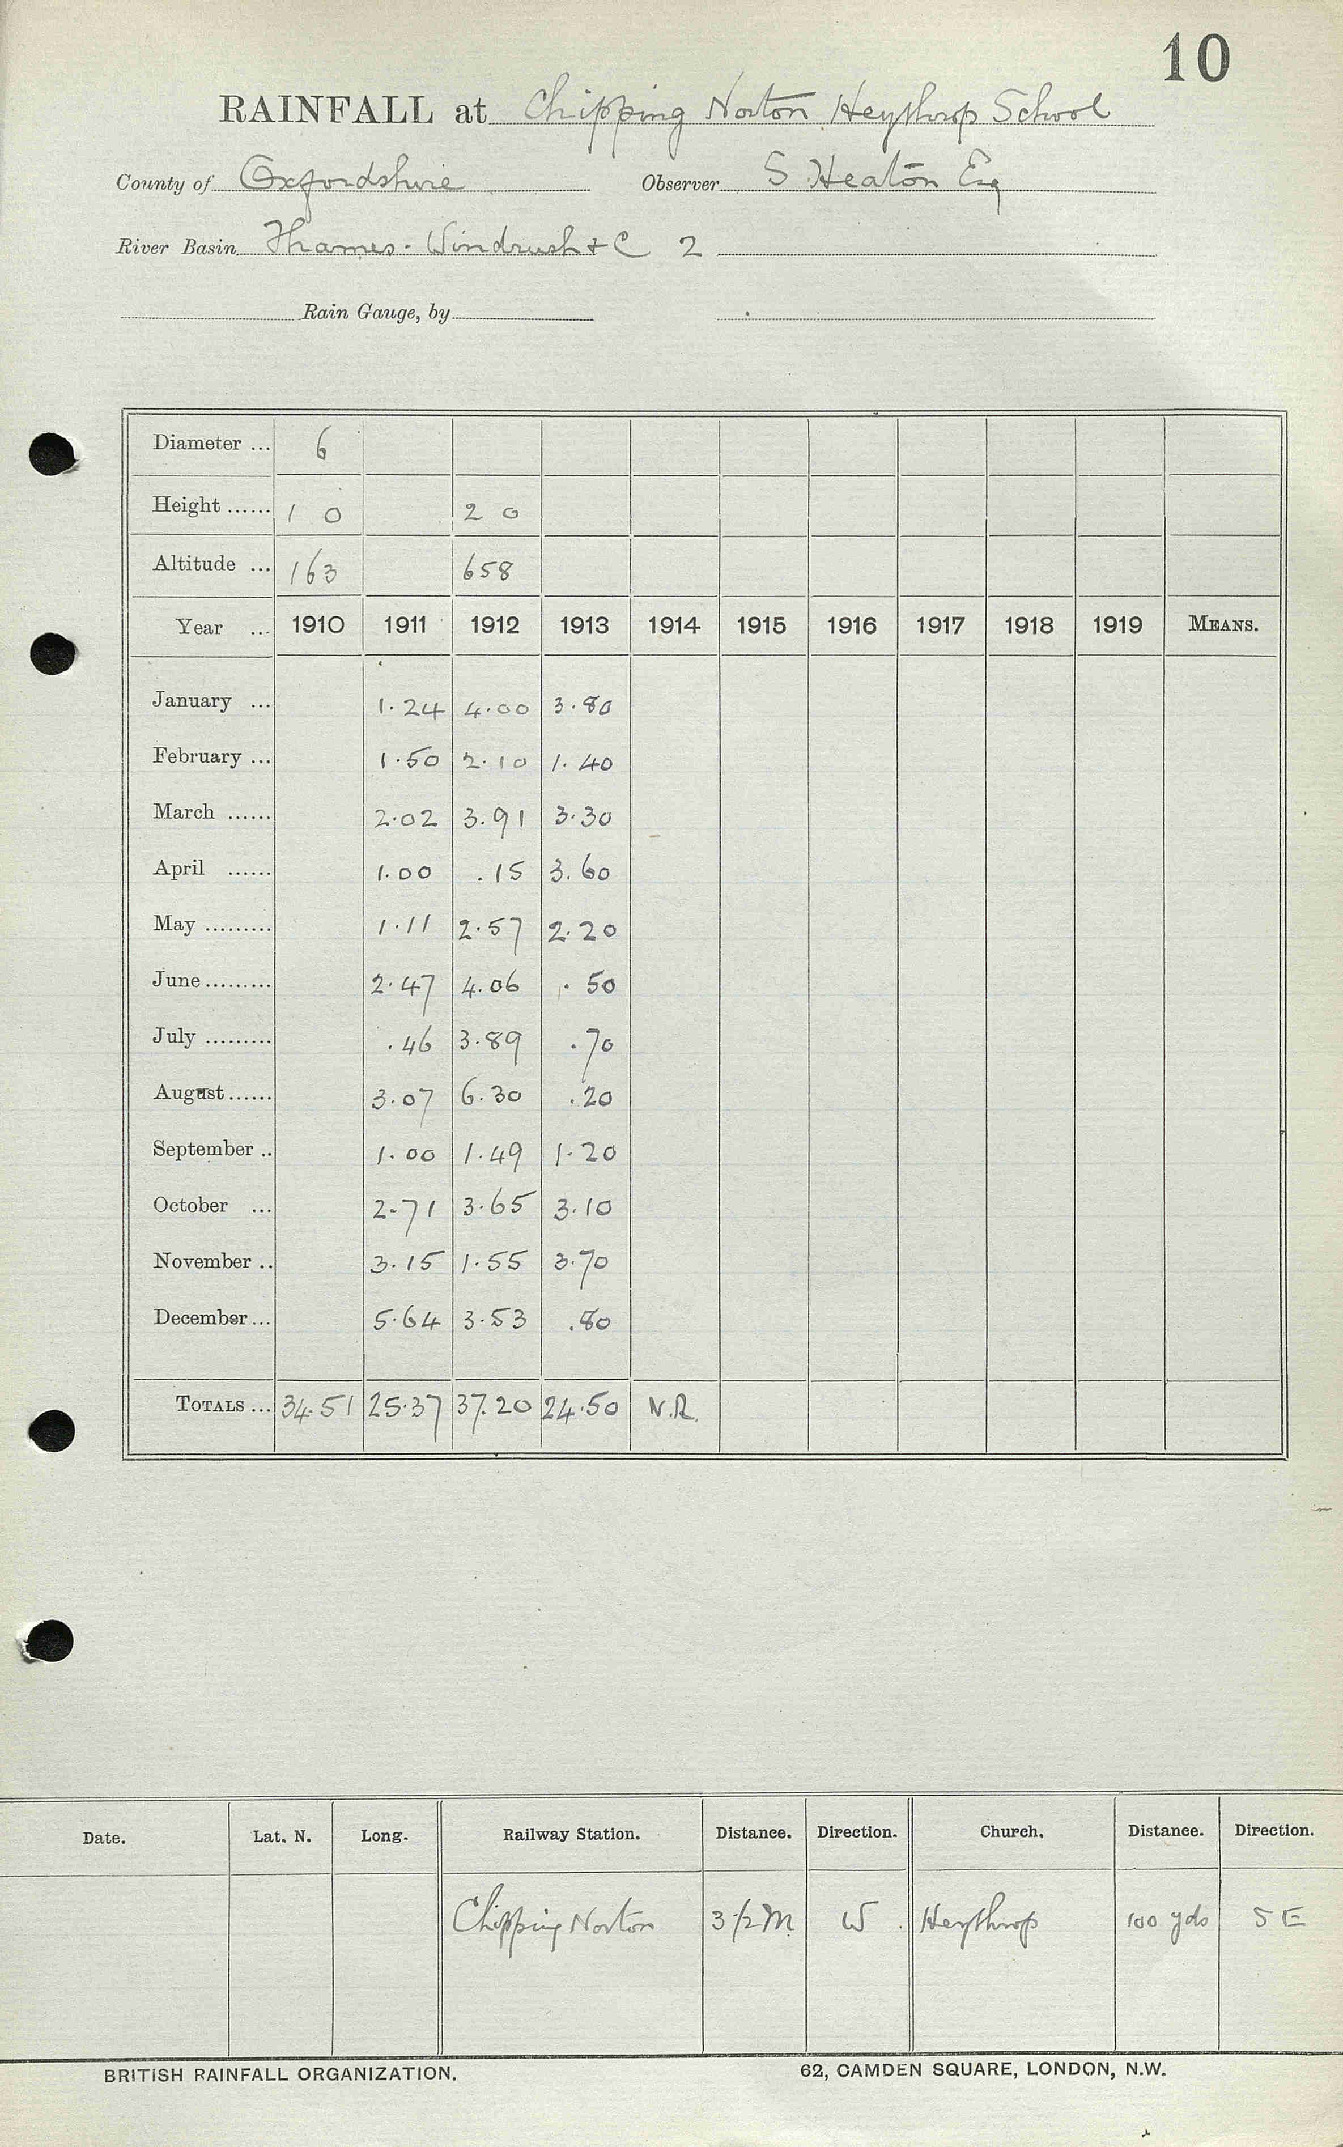 10
RAINFALL at Chipping Norton Heythrop School
County of Oxfordshire Observer S. Heaton Esq
River Basin Thames. Windrush + C 2
Rain Gauge, by
Diameter ... 6
Height ...... 1 0 2 0
Altitude ... 163 658
Year ... 1910 1911 1912 1913 1914 1915 1916 1917 1918 1919 MEANS.
January ... 1.24 4.00 3.80
February ... 1.50 2.10 1.40
March ...... 2.02 3.91 3.30
April ...... 1.00 .15 3.60
May ......... 1.11 2.57 2.20
June ......... 2.47 4.06 .50
July ......... .46 3.89 .70
August ...... 3.07 6.30 .20
September .. 1.00 1.49 1.20
October ... 2.71 3.65 3.10
November .. 3.15 1.55 3.70
December ... 5.64 3.53 .80
TOTALS ... 34.51 25.37 37.20 24.50 N.R.
Date. Lat. N. Long. Railway Station. Distance. Direction. Church. Distance. Direction.
Chipping Norton 3 1/2 M W. Heythrop 100 yds S E
BRITISH RAINFALL ORGANIZATION. 62, CAMDEN SQUARE, LONDON, N.W.